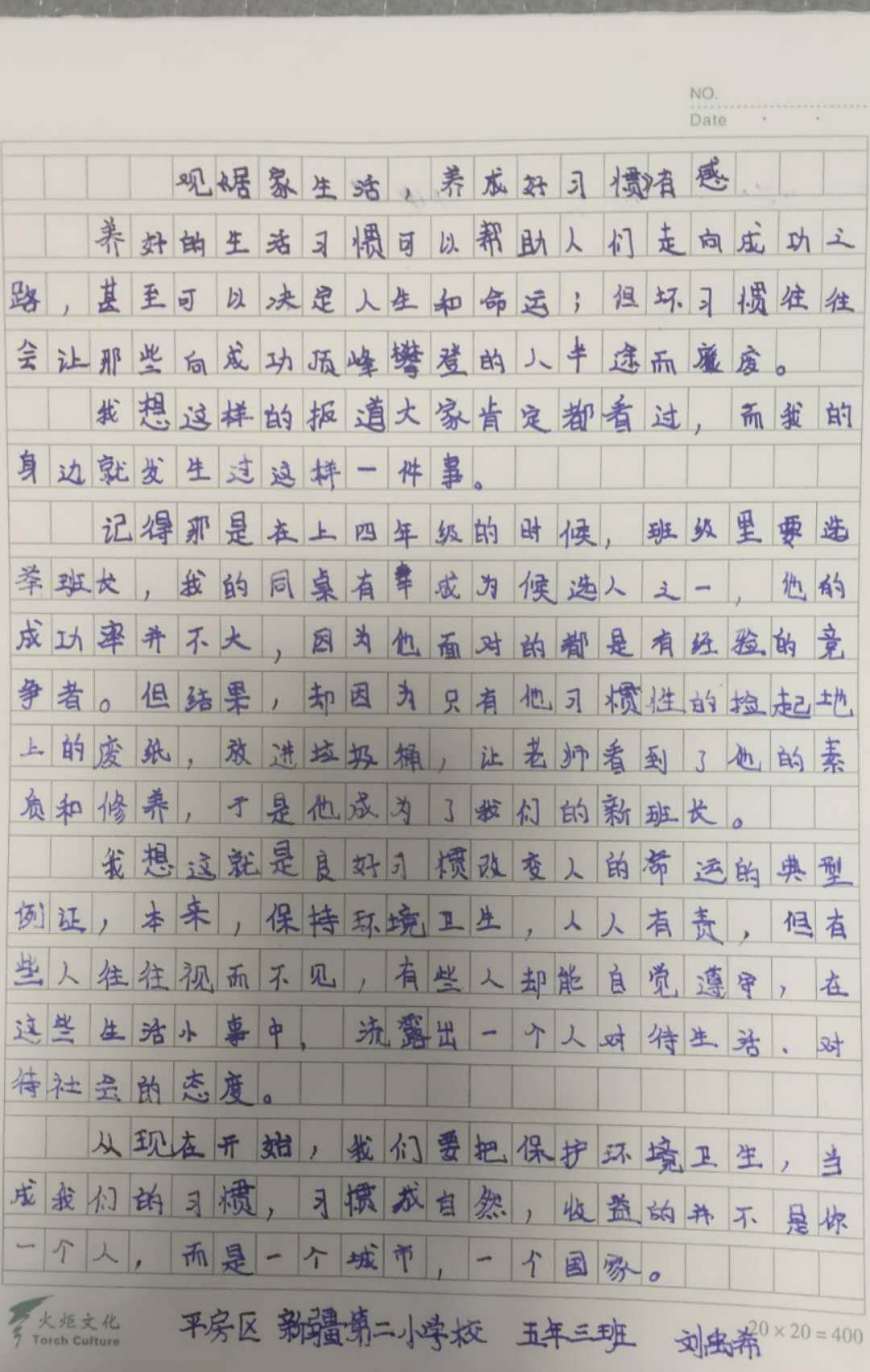 NO.
Date
观《居家生活，养成好习惯》有感
养好的生活习惯可以帮助人们走向成功之
路，甚至可以决定人生和命运；但坏习惯往往
会让那些向成功顶峰攀登的人半途而废。
我想这样的报道大家肯定都看过，而我的
身边就发生过这样一件事。
记得那是在上四年级的时候，班级里要选
举班长，我的同桌有幸成为候选人之一，他的
成功率并不大，因为他面对的都是有经验的竞
争者。但结果，却因为只有他习惯性的捡起地
上的废纸，放进垃圾桶，让老师看到了他的素
质和修养，于是他成为了我们的新班长。
我想这就是良好习惯改变人的命运的典型
例证，本来，保持环境卫生，人人有责，但有
些人往往视而不见，有些人却能自觉遵守，在
这些生活小事中，流露出一个人对待生活、对
待社会的态度。
从现在开始，我们要把保护环境卫生，当
成我们的习惯，习惯成自然，收益的并不是你
一个人，而是一个城市，一个国家。
火炬文化
Torch Culture
平房区 新疆第二小学校 五年三班 刘希
20×20=400